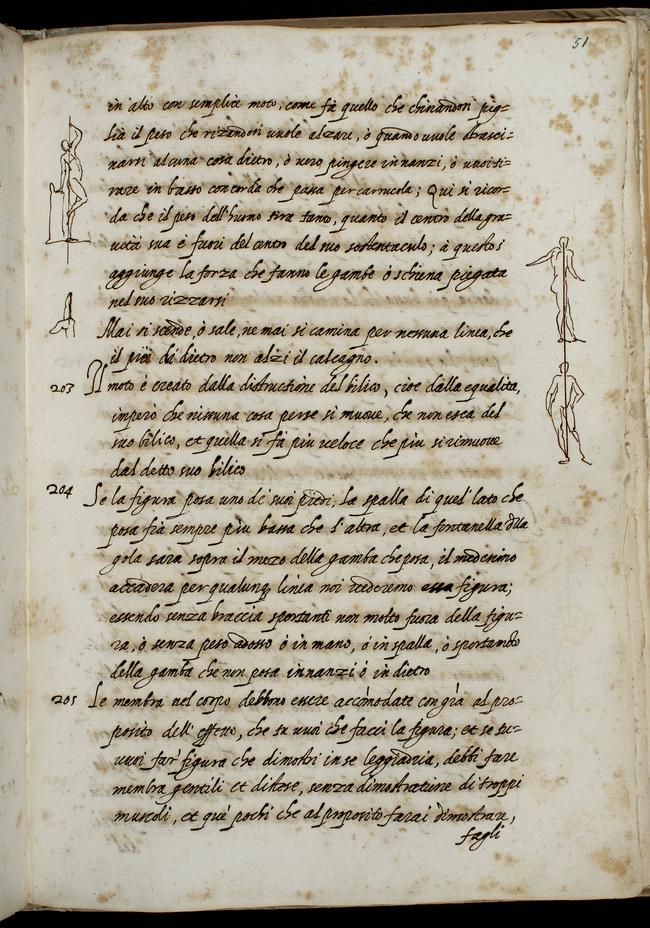 51
in alto con semplice moto, come fà quello che chinandosi pig=
lia il peso che rizandosi uuole alzare, ò quando uuole strasci=
narsi alcuna cosa dietro, ò uero pingere innanzi, ò uuol ti=
rare in basso con corda che passa per carrucola; Qui si ricor=
da che il peso dell'huomo tira tanto, quanto il centro della gra=
uità sua è fuori del centro del suo sostentaculo; à questo s'
aggiunge la forza che fanno le gambe ò schiena piegata
nel suo rizzarsi
Mai si scende, ò sale, ne mai si camina per nessuna linea, che
il piè di dietro non alzi il calcagno.
203 Il moto è creato dalla distruttione del bilico, cioè dalla equalità,
imperò che nissuna cosa per se si muoue, che non esca del
suo bilico, et quella si fà più veloce che più si rimuoue
dal detto suo bilico
204 Se la figura posa uno de' suoi piedi, la spalla di quel lato che
posa fia sempre più bassa che l'altra, et la fontanella della
gola sarà sopra il mezo della gamba che posa, il medesimo
accaderà per qualunq linea noi uederemo essa figura;
essendo senza braccia sportanti non molto fuora della figu=
ra, ò senza peso adosso ò in mano, ò in spalla, ò sportamento
della gamba che non posa innanzi ò in dietro
205 Le membra nel corpo debbono essere accomodate con grà al pro=
posito dell'effetto, che tu uuoi che facci la figura; et se tu
uuoi far' figura che dimostri in se leggiadria, debbi fare
membra gentili et distese, senza dimostratione di troppi
muscoli, et què pochi che al proposito farai dimostrare,
fagli